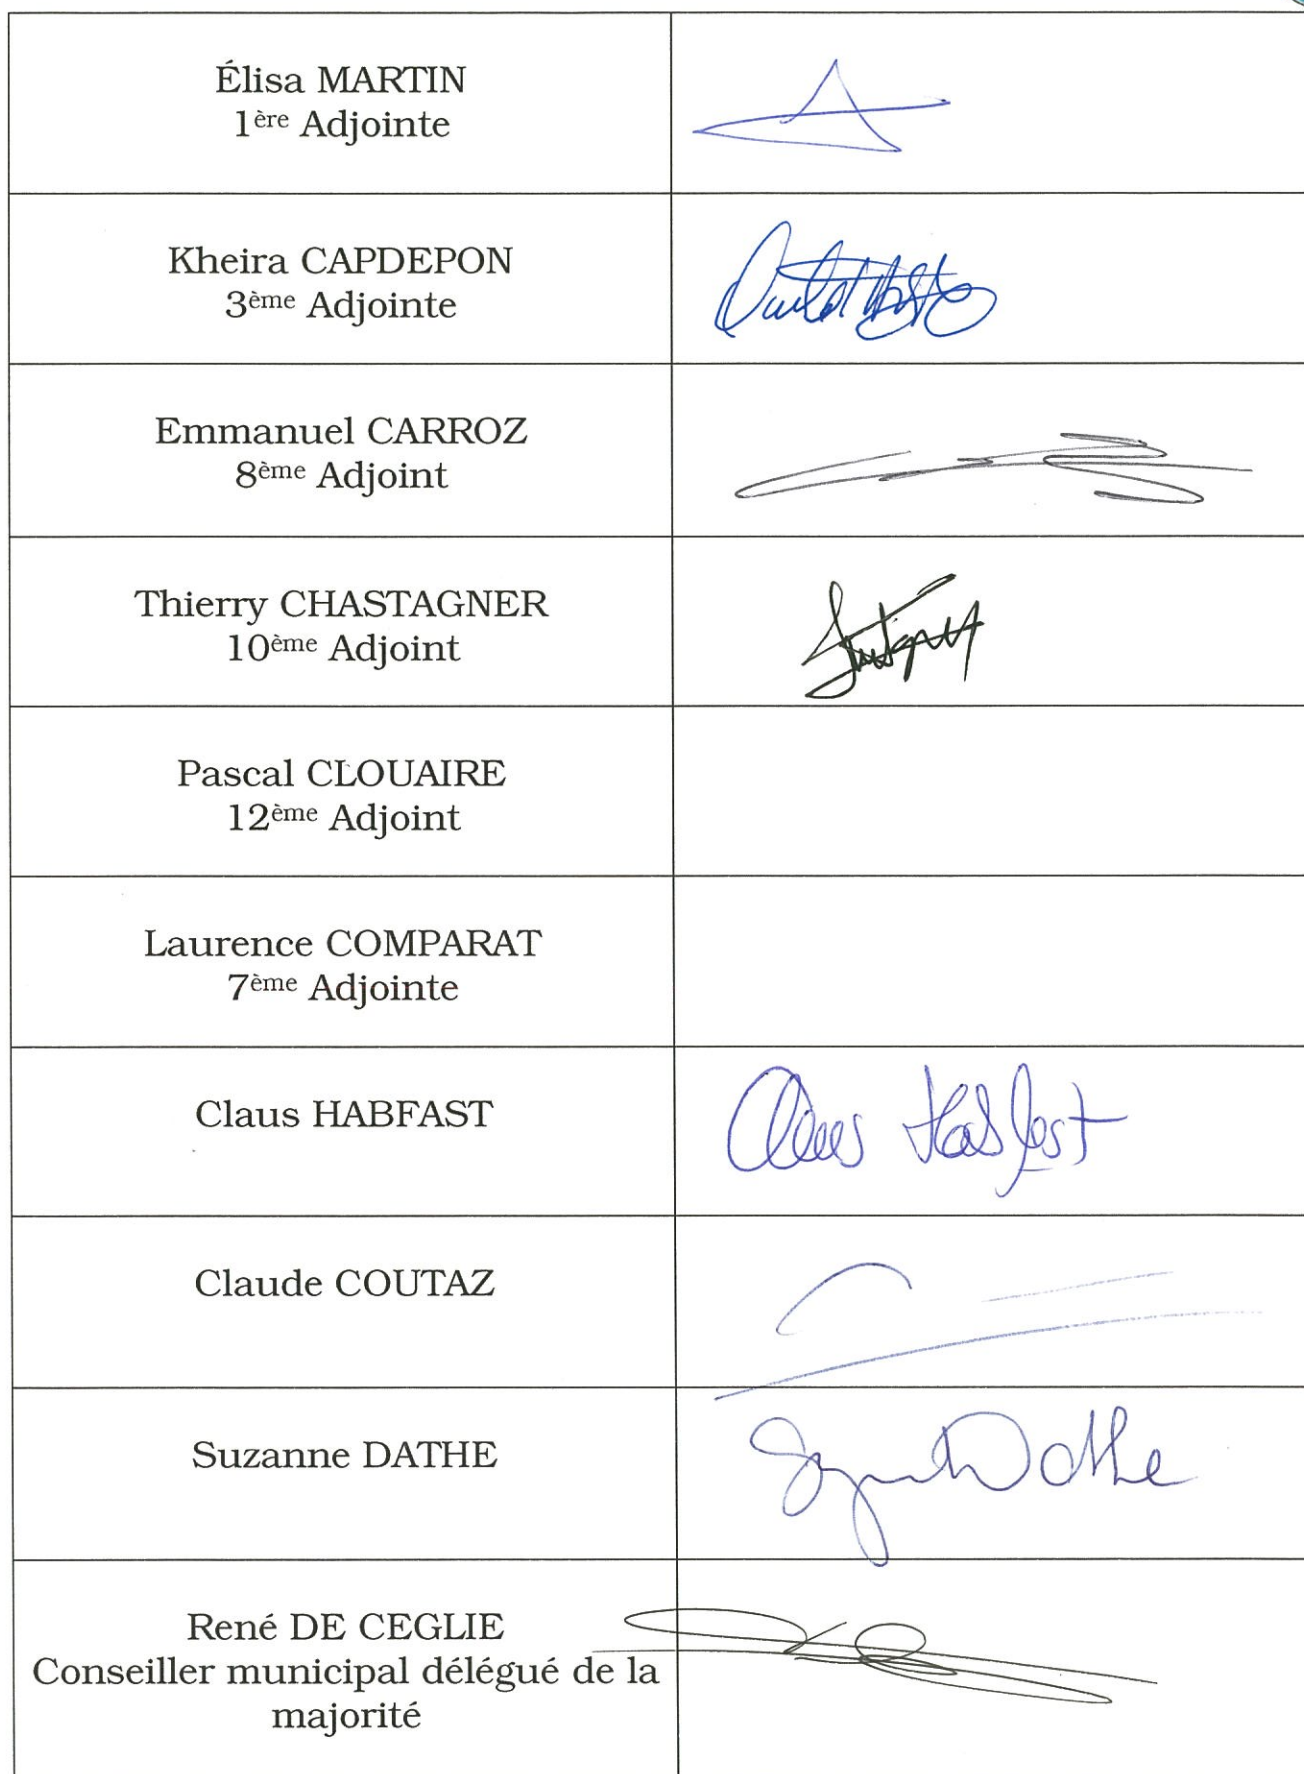 Élisa MARTIN
1ère Adjointe
Kheira CAPDEPON
3ème Adjointe
Emmanuel CARROZ
8ème Adjoint
Thierry CHASTAGNER
10ème Adjoint
Pascal CLOUAIRE
12ème Adjoint
Laurence COMPARAT
7ème Adjointe
Claus HABFAST
Claus Habfast
Claude COUTAZ
Suzanne DATHE
Suzanne Dathe
René DE CEGLIE
Conseiller municipal délégué de la
majorité